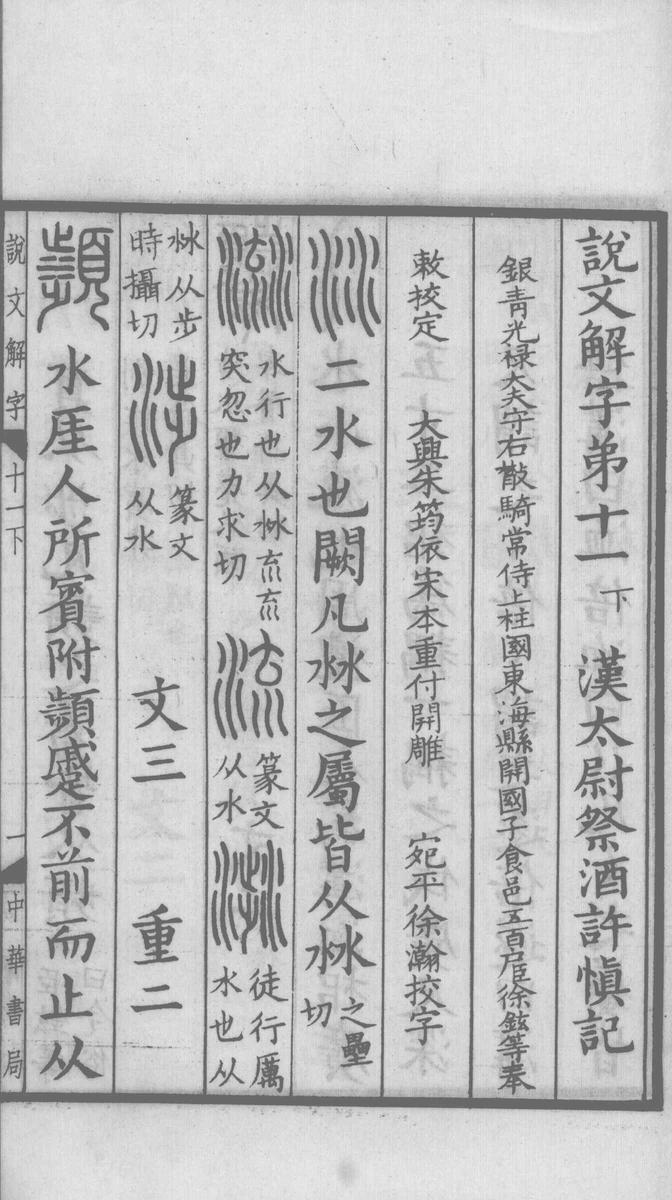 說文解字弟十一下　漢太尉祭酒許愼記
銀青光祿大夫守右散騎常侍上柱國東海縣開國子食邑五百戶臣徐鉉等奉
敕挍定　大興朱筠依宋本重付開雕　宛平徐瀚挍字
沝　二水也闕凡沝之屬皆从沝之壘切
𣹰　水行也从沝㐬㐬突忽也力求切　流　篆文从水　𣻣　徒行厲水也从
沝从步時攝切　涉　篆文从水　文三　重二
頻　水厓人所賓附頻蹙不前而止从
說文解字　十一下　一　中華書局